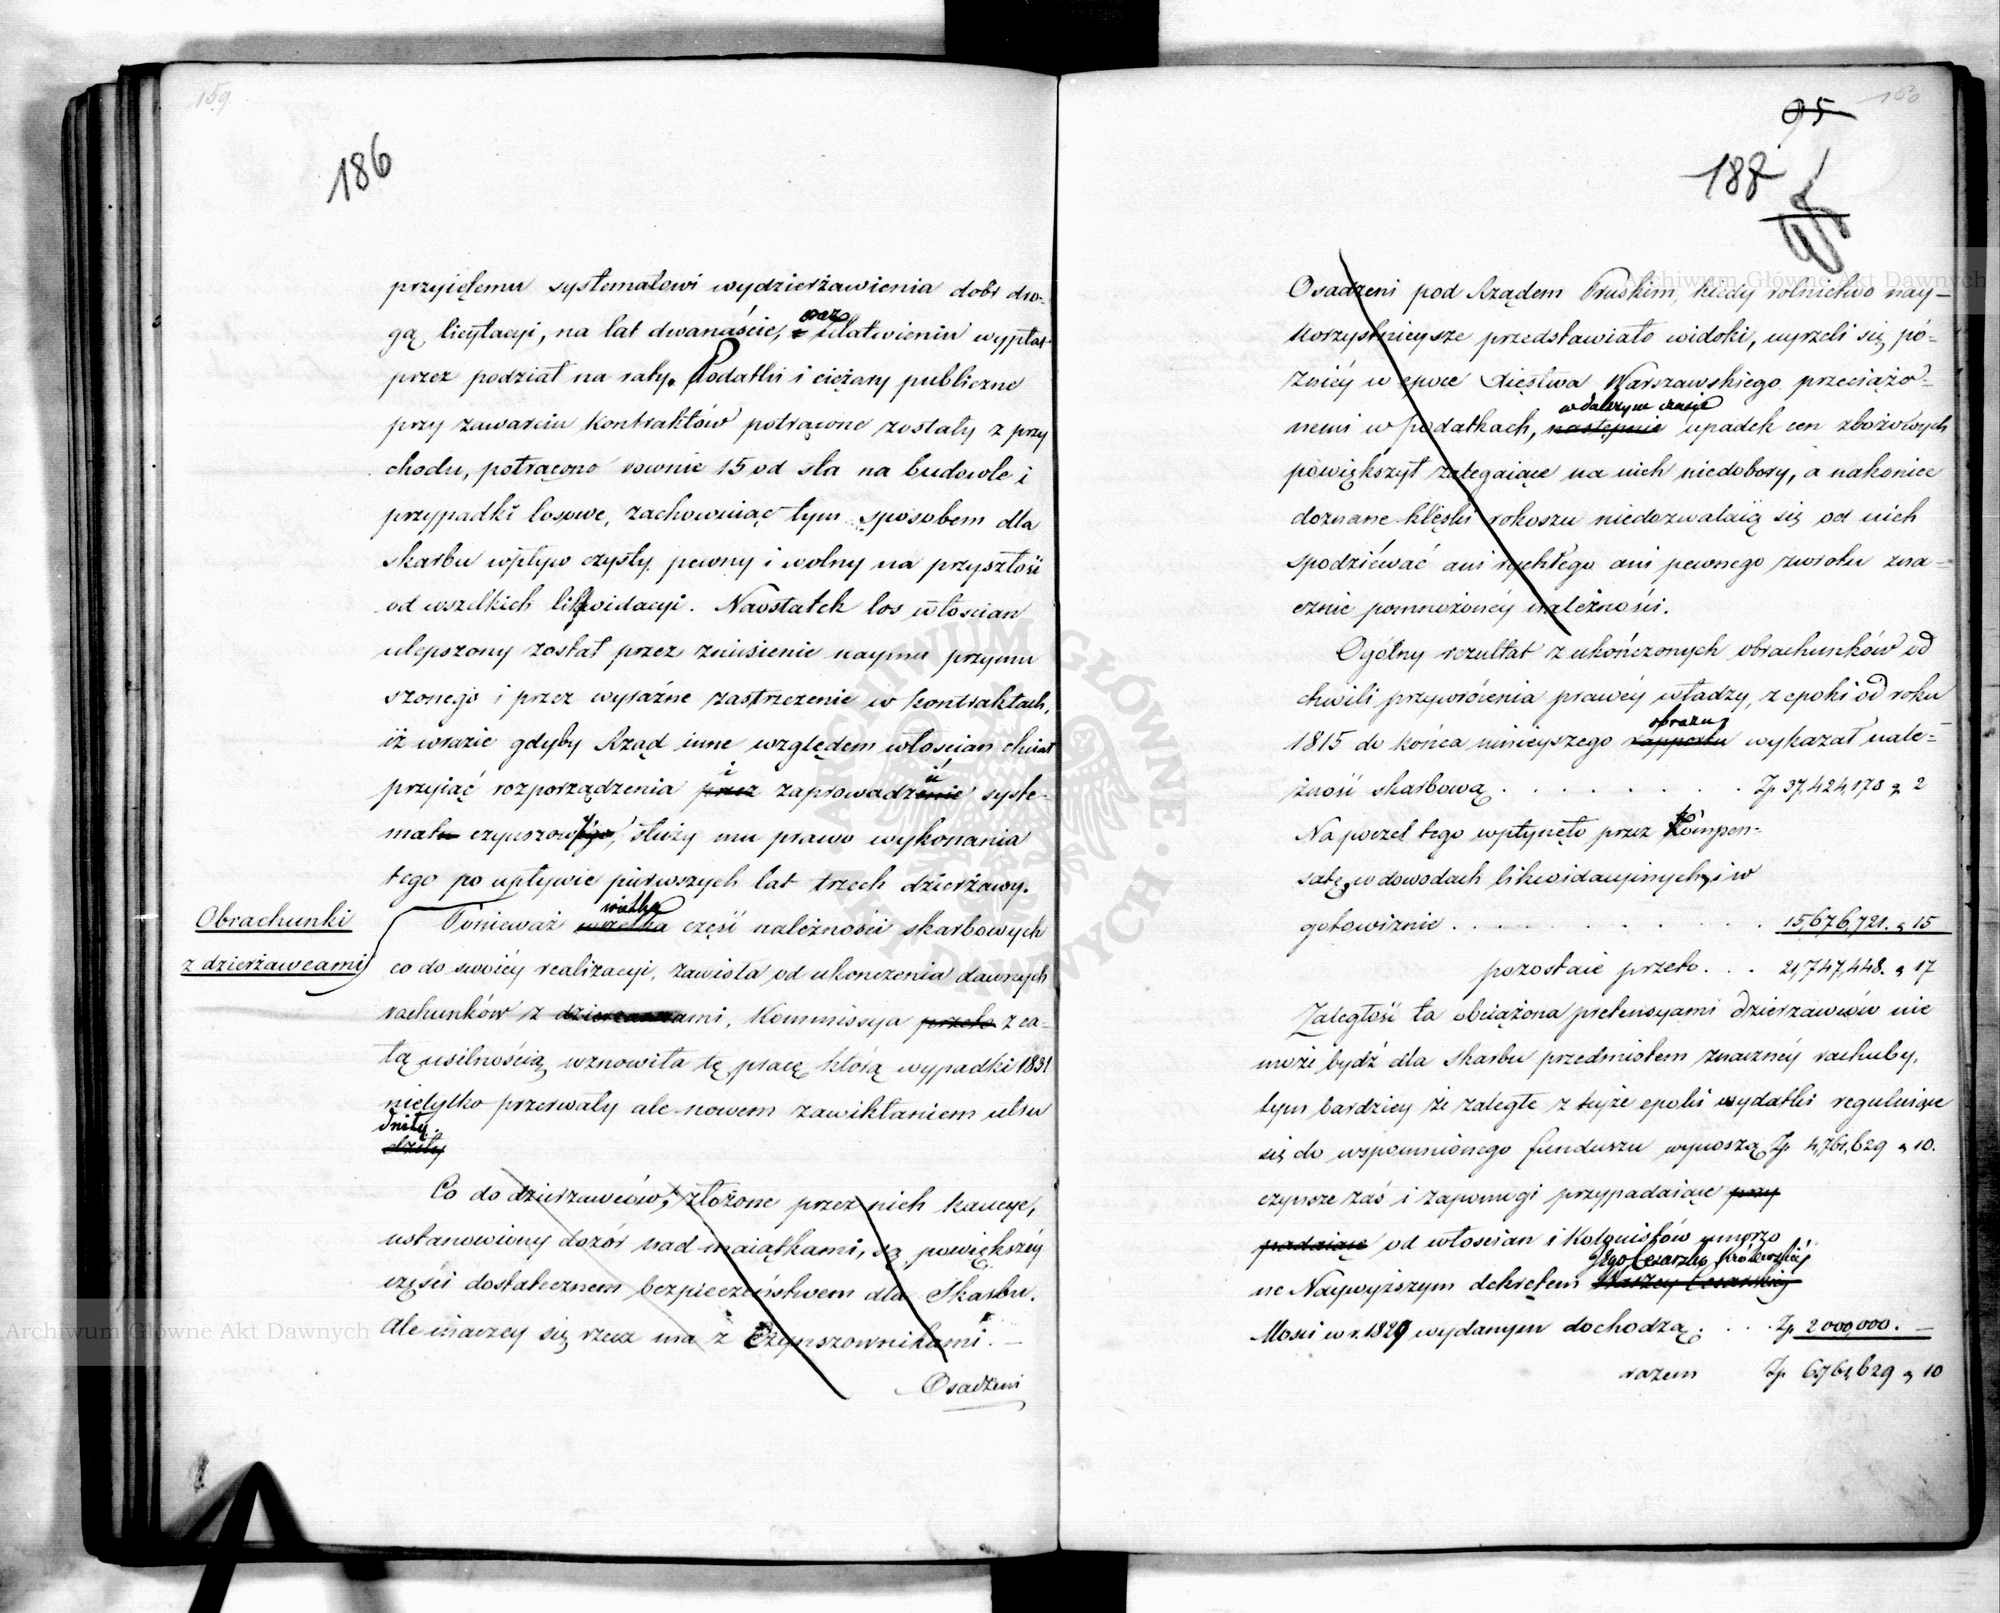 159
186
przyiętemu systematowi wydzierżawienia dobr dro-
gą licytacyi, na lat dwanaście, oraz ułatwieniu wypłat
przez podział na raty. Podatki i ciężary publiczne
przy zawarciu kontraktów potrącone zostały z przy
chodu, potrącono rownie 15 od sta na budowle i
przypadki losowe, zachowuiąc tym sposobem dla
skarbu wpływ czysty, pewny i wolny na przyszłość
od wszelkich likwidacyi. Naostatek los włościan
ulepszony został przez zniesienie naymu przymu
szonego i przez wyraźne zastrzeżenie w kontraktach,
iż wrazie gdyby Rząd inne względem włościan chciał
przyiąć rozporządzenia i zaprowadzić syste-
mat czynszowy, służy mu prawo wykonania
tego po upływie pierwszych lat trzech dzierżawy.
Obrachunki
z dzierżawcami
Ponieważ wielka część należności skarbowych
co do swoiéy realizacyi, zawisła od ukończenia dawnych
rachunków z dzierzawcami, Kommissya przeto z ca-
łą usilnością wznowiła tę pracę którą wypadki 1831
nietylko przerwały ale nowem zawikłaniem utru
dniły.
dziły
Co do dzierzawców, złożone przez nich kaucye,
ustanowiony dozór nad maiątkami, są powiększéy
części dostatecznem bezpieczeństwem dla Skarbu.
Ale inaczey się rzecz ma z Czynszownikami. —
Osadzeni
160
95
187
Osadzeni pod Rządem Pruskim, kiedy rolnictwo nay-
korzystnieysze przedstawiało widoki, uyrzeli się pó-
źniéy w epoce Xięstwa Warszawskiego przeciążo-
w dalszym czasie
nemi w podatkach, następnie upadek cen zbożowych
powiększył zalegaiące na nich niedobory, a nakoniec
doznane klęski rokoszu niedozwalaią się od nich
spodziéwać ani rychłego ani pewnego zwrotu zna-
cznie pomnożonéy należności.
Ogólny rezultat z ukończonych obrachunków od
chwili przywrócenia prawéy władzy, z epoki od roku
obrazu
1815 do końca ninieyszego rapportu wykazał nale-
żność skarbową . . . . . . . . Zp. 37,424,178 g 2
Na poczet tego wpłynęło przez kompen-
satę, w dowodach likwidacyinych, i w
gotowiznie . . . . . . . . 15,676,721. g 15
pozostaie przeto . . . 21,747,448. g 17
Zaległość ta obciążona pretensyami dzierzawców nie
może bydź dla skarbu przedmiotem znacznéy rachuby,
tym bardziey że zaległe z teyże epoki wydatki reguluiące
się do wspomnionego funduszu wynoszą Zp. 4,761,629 g 10.
czynsze zaś i zapomogi przypadaiące przy
padaiące od włościan i Kolonistów umorzo
Jego Cesarsko Królewskiéy
ne Naywyższym dekretem Waszey Cesarskiey
Mości w r. 1829 wydanym dochodzą . . . Zp. 2000,000. —
razem Zp. 6,761,629 g 10
Archiwum Główne Akt Dawnych
Archiwum Główne Akt Dawnych
ARCHIWUM GŁÓWNE AKT DAWNYCH